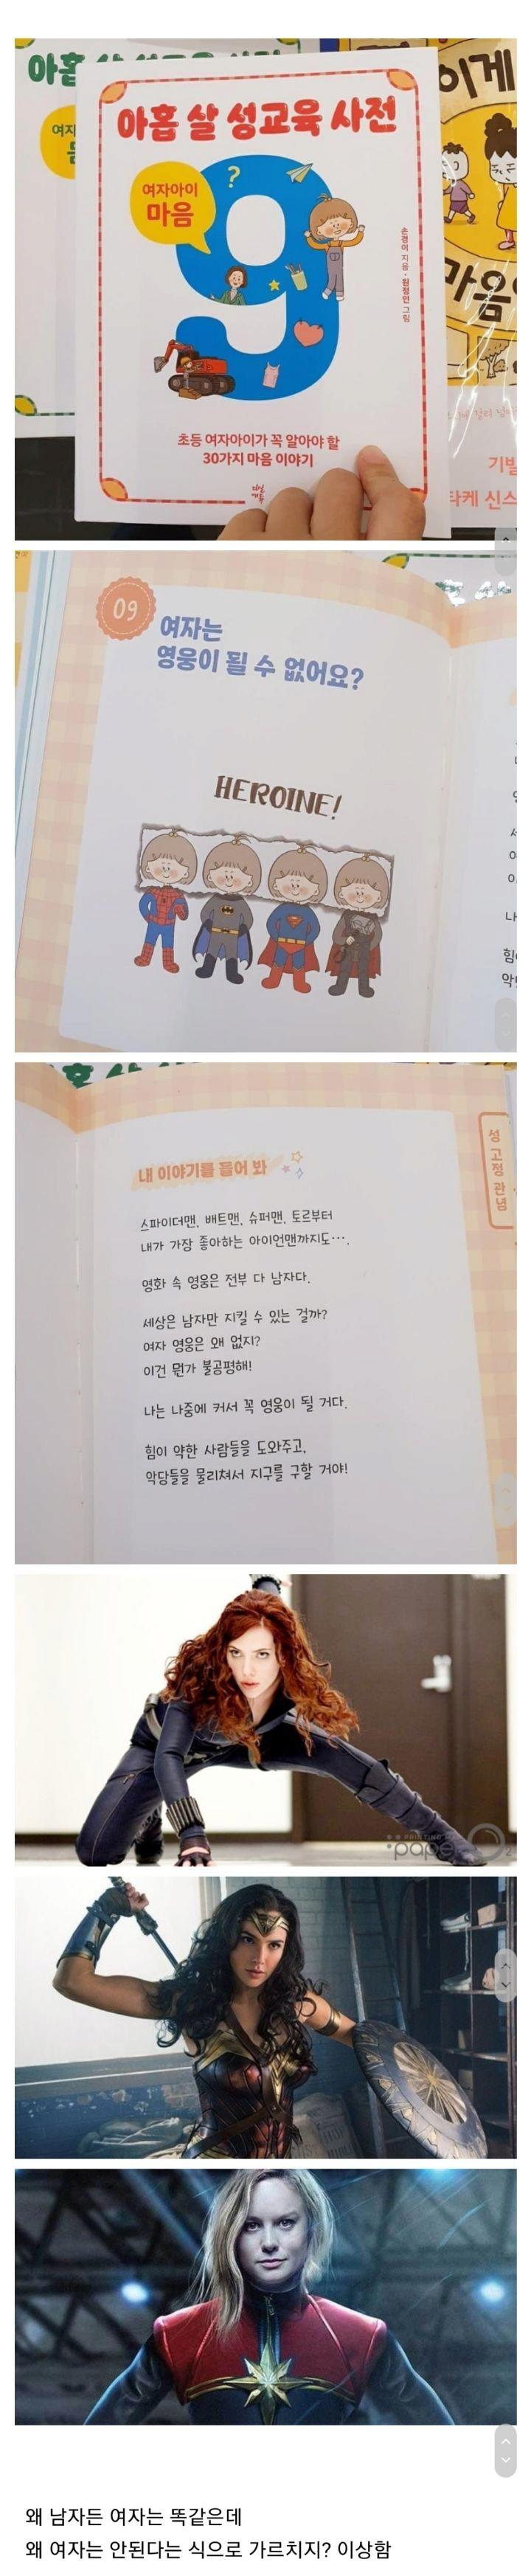 아홉 살 성교육 사전
여자아이
마음
손경이 지음 · 원정민 그림
초등 여자아이가 꼭 알아야 할
30가지 마음 이야기
09
여자는
영웅이 될 수 없어요?
HEROINE!
성 고정 관념
내 이야기를 들어 봐
스파이더맨, 배트맨, 슈퍼맨, 토르부터
내가 가장 좋아하는 아이언맨까지도….
영화 속 영웅은 전부 다 남자다.
세상은 남자만 지킬 수 있는 걸까?
여자 영웅은 왜 없지?
이건 뭔가 불공평해!
나는 나중에 커서 꼭 영웅이 될 거다.
힘이 약한 사람들을 도와주고,
악당들을 물리쳐서 지구를 구할 거야!
왜 남자든 여자는 똑같은데
왜 여자는 안된다는 식으로 가르치지? 이상함